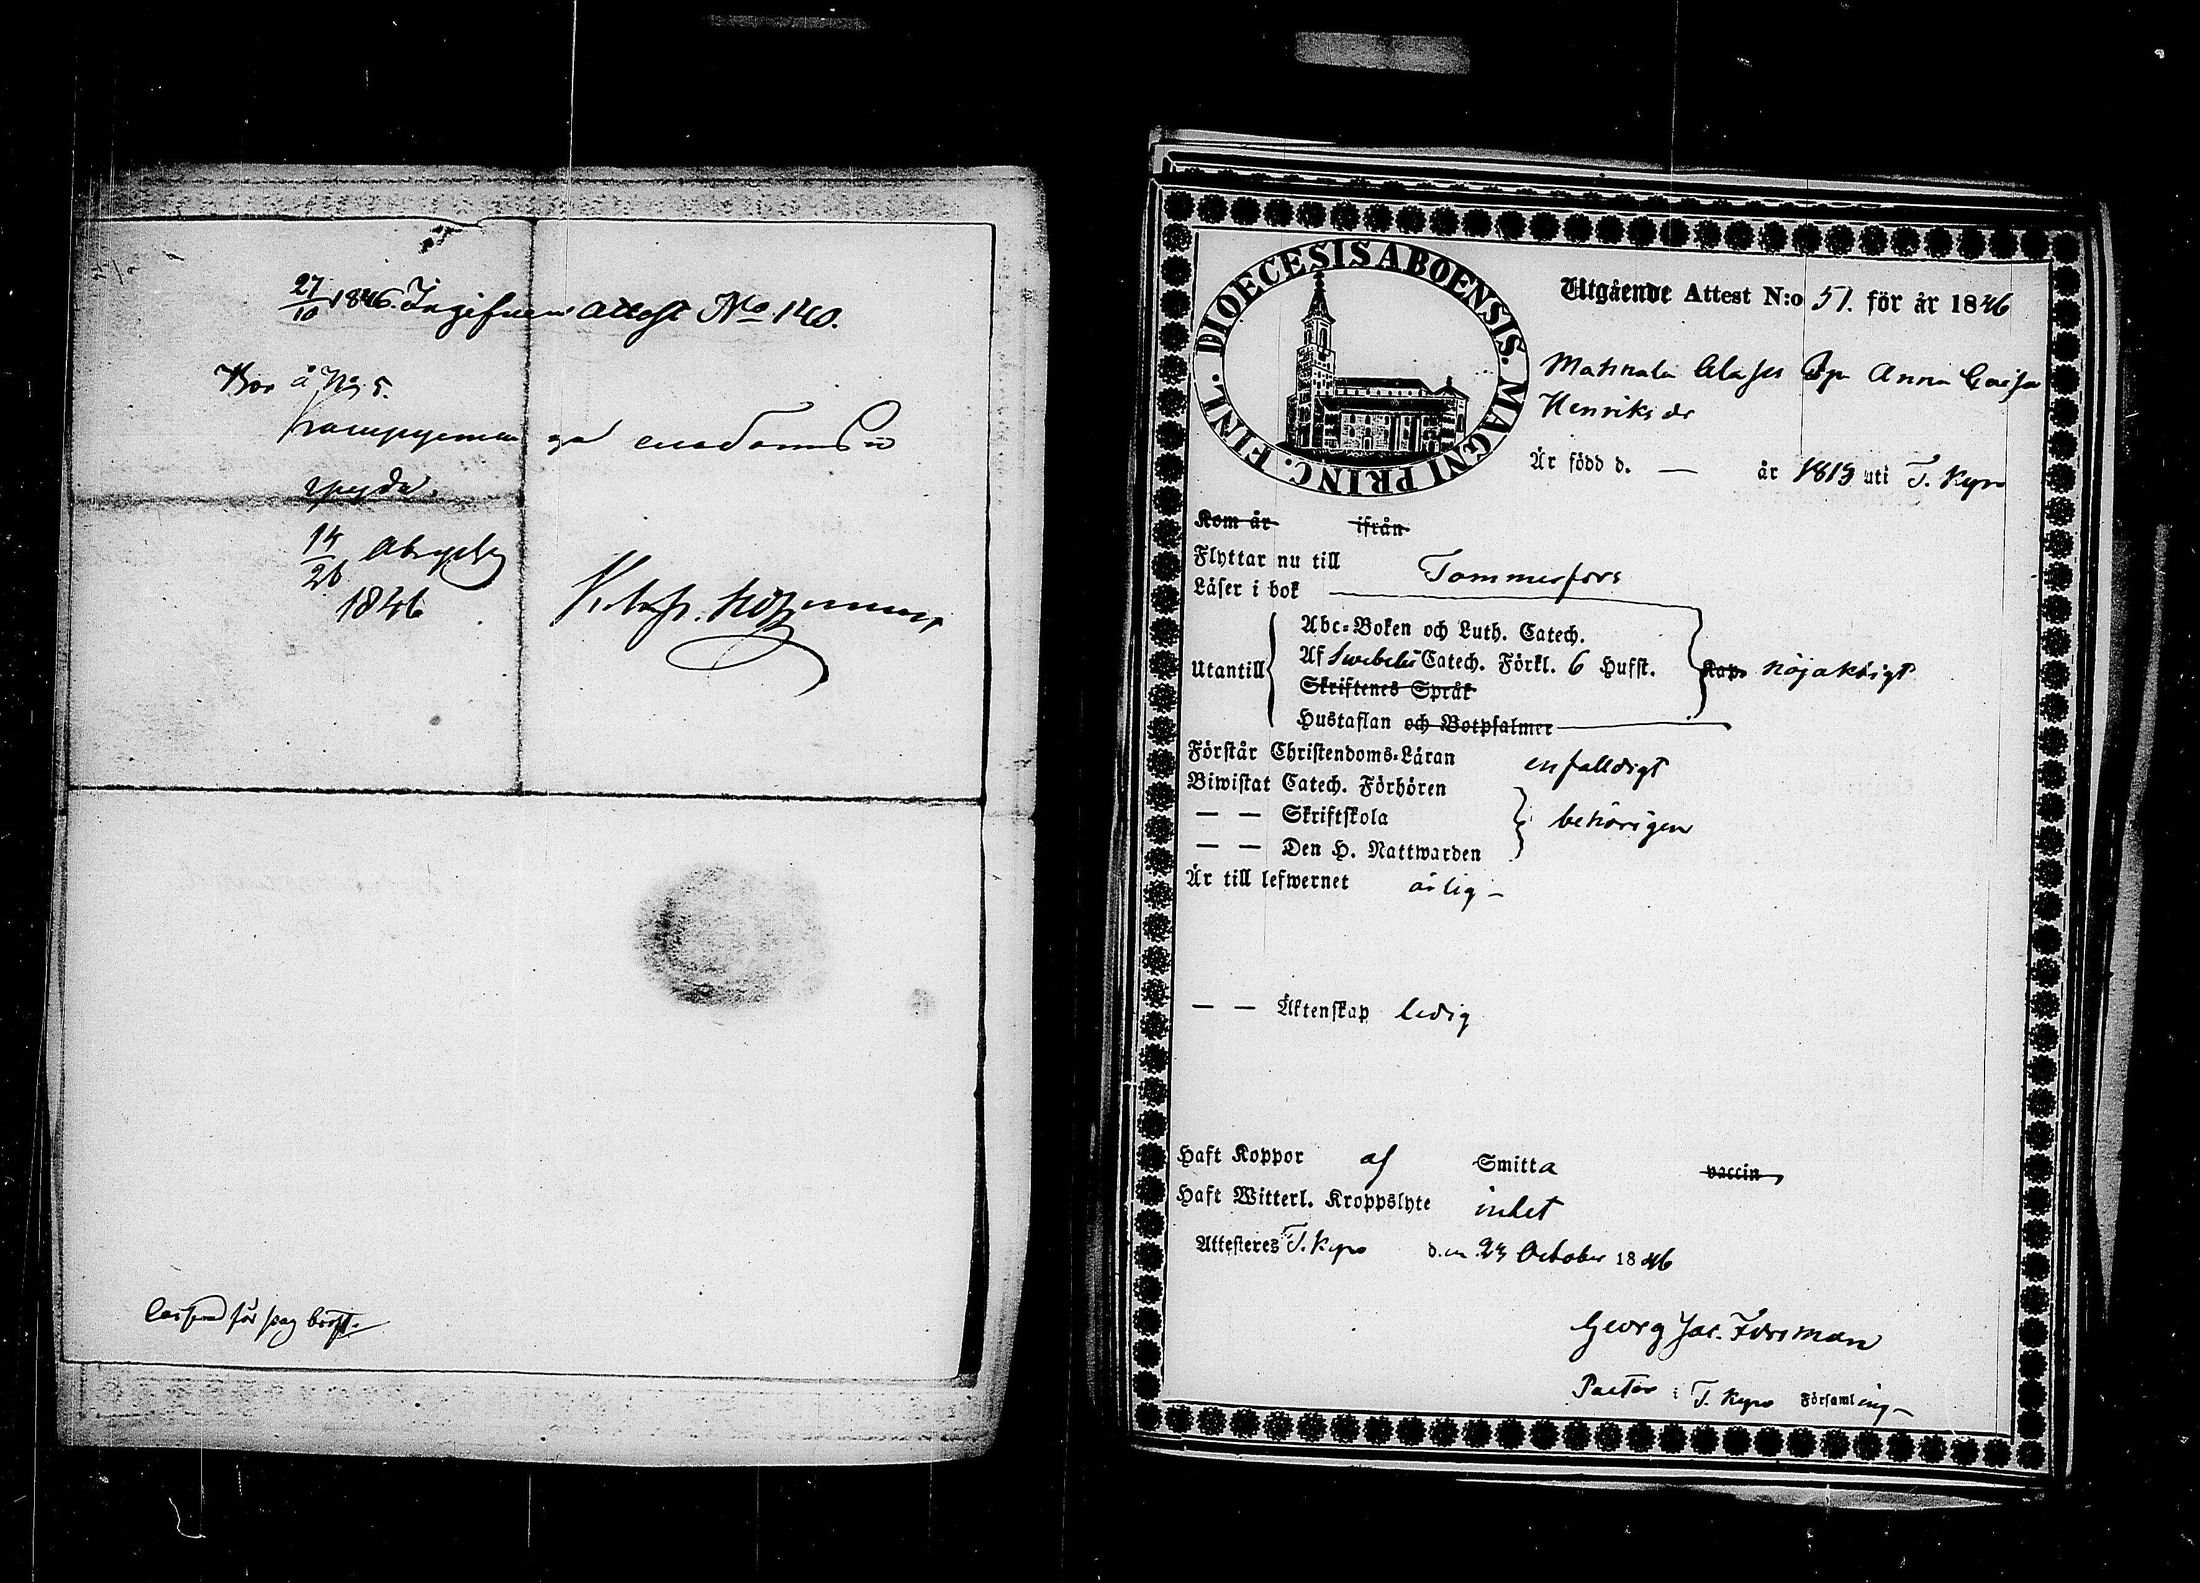 27/10 1846. Ingifven attest No 140.
Bor å No 5.
14/26 
1846
för hvag
DIOECESIS ABOENSIS. MAGNI PRINC. FINL.
Utgående Attest N:o 51. för år 1846
Anna Caisa
Henriksdr
Är född d. — år 1813 uti T. Kyro
Kom år ifrån
Flyttar nu till Tammerfors
Läser i bok
Utantill
Abc-Boken och Luth. Catech.
Af Swebelii Catech. Förkl. 6 Hufst.
Kap. nöjaktigt
Skriftenes Språk
Hustaflan och Botpsalmer
Förstår Christendoms-Läran enfalldigt
Biwistat Catech. Förhören
— — Skriftskola behörigen
— — Den H. Nattwarden
Är till lefwernet ärlig –
— — Äktenskap ledig
Haft Koppor af Smitta vaccin
Haft Witterl. Kroppslyte intet
Attesteres T. Kyro den 23 October 1846
Georg Jac. Forsman
Pastor i T. Kyro Församling –